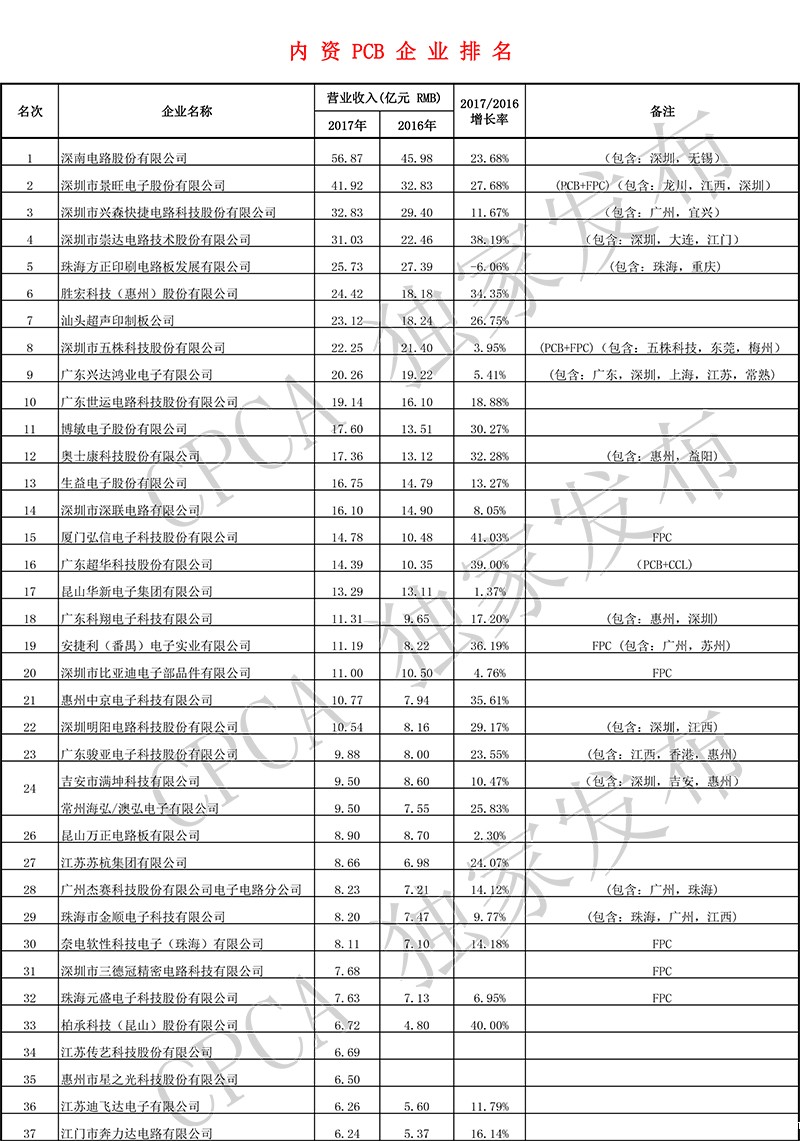 内 资 PCB 企 业 排 名
名次 企业名称 营业收入(亿元 RMB) 2017/2016 增长率 备注
2017年 2016年
1 深南电路股份有限公司 56.87 45.98 23.68% (包含：深圳，无锡)
2 深圳市景旺电子股份有限公司 41.92 32.83 27.68% (PCB+FPC)（包含：龙川，江西，深圳）
3 深圳市兴森快捷电路科技股份有限公司 32.83 29.40 11.67% (包含：广州，宜兴)
4 深圳市崇达电路技术股份有限公司 31.03 22.46 38.19% （包含：深圳，大连，江门）
5 珠海方正印刷电路板发展有限公司 25.73 27.39 -6.06% (包含：珠海，重庆)
6 胜宏科技（惠州）股份有限公司 24.42 18.18 34.35%
7 汕头超声印制板公司 23.12 18.24 26.75%
8 深圳市五株科技股份有限公司 22.25 21.40 3.95% (PCB+FPC)（包含：五株科技，东莞，梅州）
9 广东兴达鸿业电子有限公司 20.26 19.22 5.41% (包含：广东，深圳，上海，江苏，常熟)
10 广东世运电路科技股份有限公司 19.14 16.10 18.88%
11 博敏电子股份有限公司 17.60 13.51 30.27%
12 奥士康科技股份有限公司 17.36 13.12 32.28% (包含：惠州，益阳)
13 生益电子股份有限公司 16.75 14.79 13.27%
14 深圳市深联电路有限公司 16.10 14.90 8.05%
15 厦门弘信电子科技股份有限公司 14.78 10.48 41.03% FPC
16 广东超华科技股份有限公司 14.39 10.35 39.00% （PCB+CCL)
17 昆山华新电子集团有限公司 13.29 13.11 1.37%
18 广东科翔电子科技有限公司 11.31 9.65 17.20% (包含：惠州，深圳)
19 安捷利（番禺）电子实业有限公司 11.19 8.22 36.19% FPC (包含：广州，苏州)
20 深圳市比亚迪电子部品件有限公司 11.00 10.50 4.76% FPC
21 惠州中京电子科技有限公司 10.77 7.94 35.61%
22 深圳明阳电路科技股份有限公司 10.54 8.16 29.17% (包含：深圳，江西)
23 广东骏亚电子科技股份有限公司 9.88 8.00 23.55% (包含：江西，香港，惠州)
24 吉安市满坤科技有限公司 9.50 8.60 10.47% (包含：深圳，吉安，惠州）
常州海弘/澳弘电子有限公司 9.50 7.55 25.83%
26 昆山万正电路板有限公司 8.90 8.70 2.30%
27 江苏苏杭集团有限公司 8.66 6.98 24.07%
28 广州杰赛科技股份有限公司电子电路分公司 8.23 7.21 14.12% (包含：广州，珠海)
29 珠海市金顺电子科技有限公司 8.20 7.47 9.77% (包含：珠海，广州，江西)
30 奈电软性科技电子（珠海）有限公司 8.11 7.10 14.18% FPC
31 深圳市三德冠精密电路科技有限公司 7.68 FPC
32 珠海元盛电子科技股份有限公司 7.63 7.13 6.95% FPC
33 柏承科技（昆山）股份有限公司 6.72 4.80 40.00%
34 江苏传艺科技股份有限公司 6.69
35 惠州市星之光科技股份有限公司 6.50
36 江苏迪飞达电子有限公司 6.26 5.60 11.79%
37 江门市奔力达电路有限公司 6.24 5.37 16.14%
CPCA 独家发布
CPCA 独家发布
CPCA 独家发布